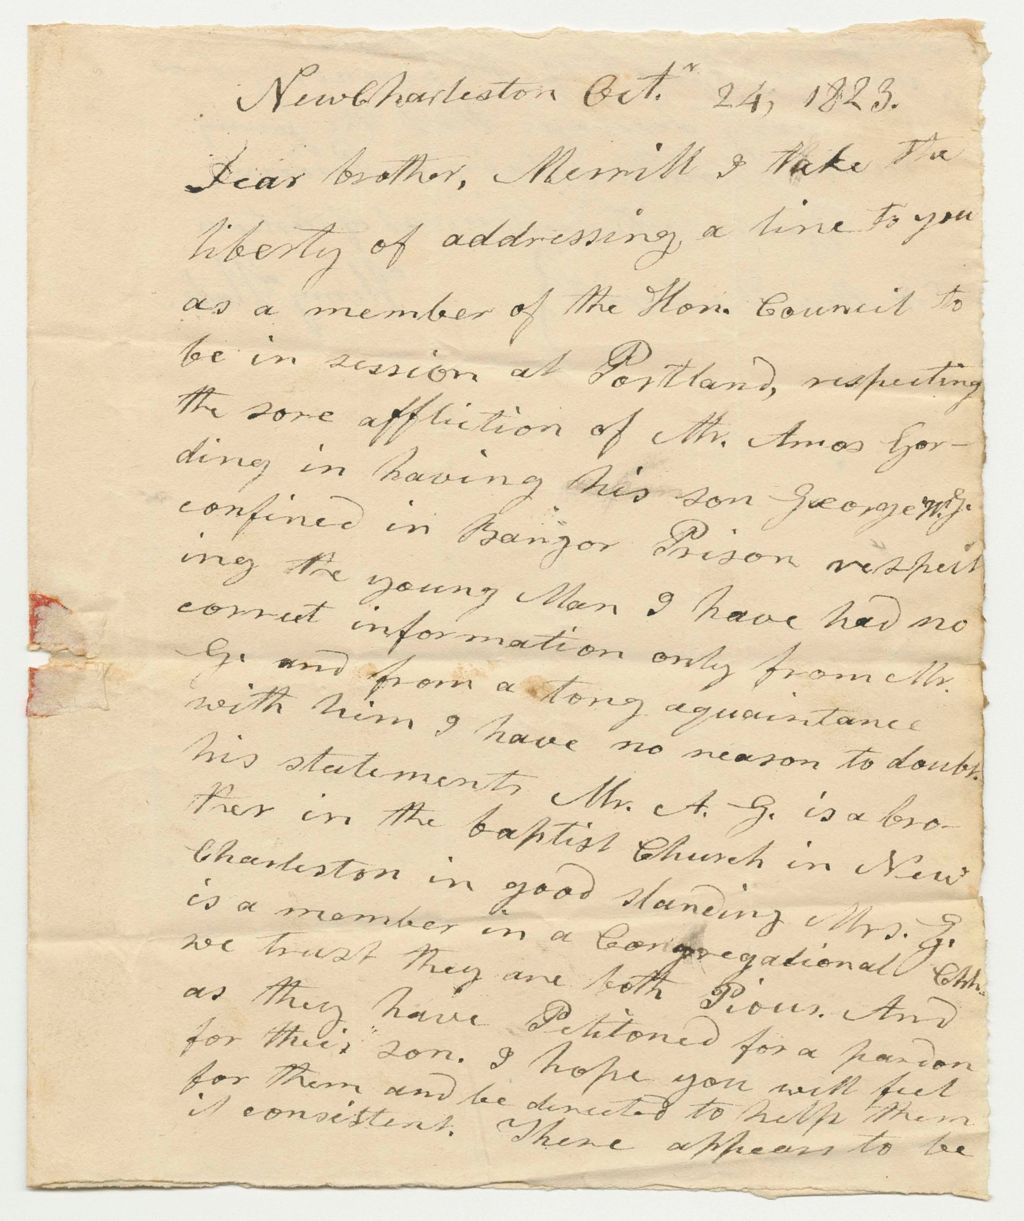 NewCharleston Oct.r 24, 1823.
Dear brother, Merrill I take the
liberty of addressing, a line to you
as a member of the Hon. Council to
be in session at Portland, respecting
the sore affliction of Mr. Amos Gor-
ding in having his son George W. G.
confined in Bangor Prison respect
ing the young Man I have had no
correct information only from Mr.
G. and from a long aquaintance
with him I have no reason to doubt.
his statements Mr. A. G. is a bro-
ther in the baptist Church in New
Charleston in good standing Mrs. G.
is a member in a Congregational Chh.
we trust they are both Pious. And
as they have Petitoned for a pardon
for their son. I hope you will feel
for them and be directed to help them
if consistent. There appears to be